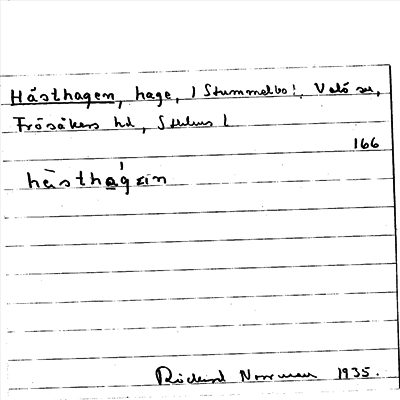 Hästhagen, hage, i Stummelbo!, Valö sn,
Frösåkers hd, Sthlms l
166
hàstha̲gɛin
Rickard Norrman 1935.